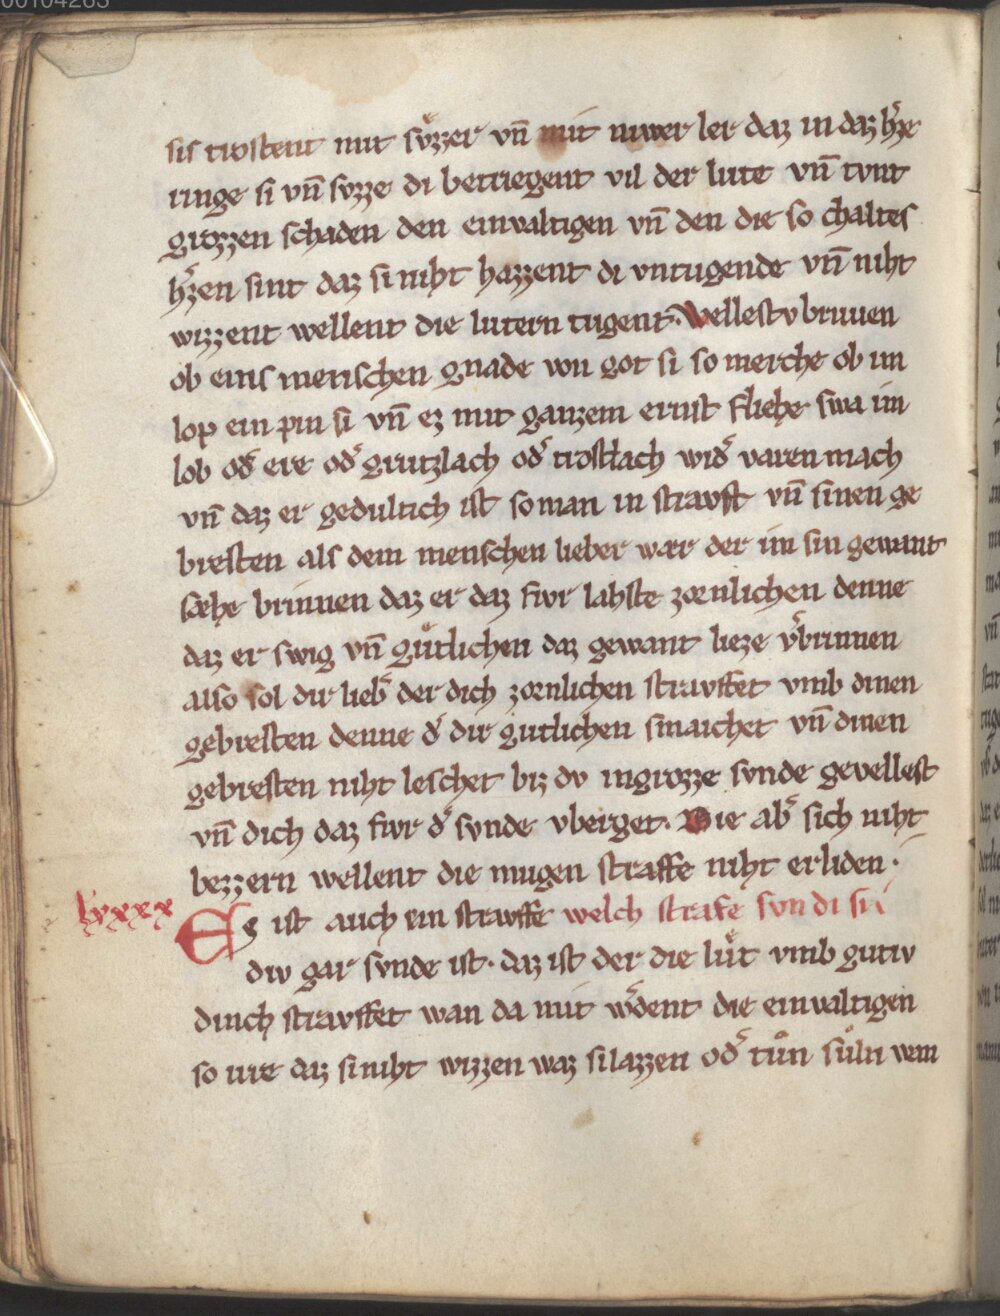 00104263
sis trostent mit sv̊zzer vn̄ mit niwer ler daz in daz h̾ze
ringe si vn̄ svzze di betriegent vil der lute vn̄ tvnt
grozzen schaden den einvaltigen vn̄ den die so chaltes
h̾zen sint daz si niht hazzent di vntugende vn̄ niht
wizzent wellent die lutern tugent. Wellestv bruuen
ob eins menschen gnade von got si so merche ob im
lop ein pin si vn̄ ez mit ganzem ernst fliehe swa im
lob od̾ ere od̾ grutzlach od̾ trostlach wid̾ varen mach
vn̄ daz er gedultich ist so man in stravft vn̄ sinen ge
bresten als dem menschen lieber wær der im sin gewant
sæhe brinnen daz er daz fiwr lahste zornlichen denne
daz er swig vn̄ gůtlichen daz gewant lieze v̾brinnen
also sol dir lieb̾ der dich zornlichen stravffet vmb dinen
gebresten denne d̾ dir gutlichen smaichet vn̄ dinen
gebresten niht leschet biz dv in grozze svnde gevellest
vn̄ dich daz fiwr d̾ svnde vberget. Die ab̾ sich niht
bezzern wellent die mugen straffe niht erliden.
lxxxx Es ist auch ein strawffe welch strafe svndi si
div gar svnde ist. daz ist der die lůt vmb gutiv
dinch stravffet wan da mit w̾dent die einvaltigen
so irre daz si niht wizzen waz si lazzen od̾ tůn sůln wem